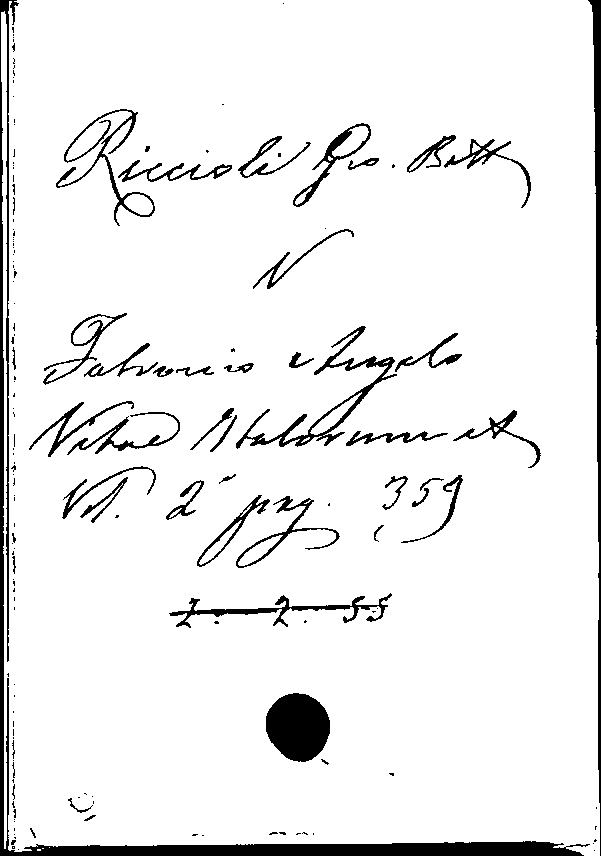 Riccioli Gio. Batt
V
Fabronio Angelo
Vitae Italorum et
Vol. 2° pag. 359
Z. 2. 55